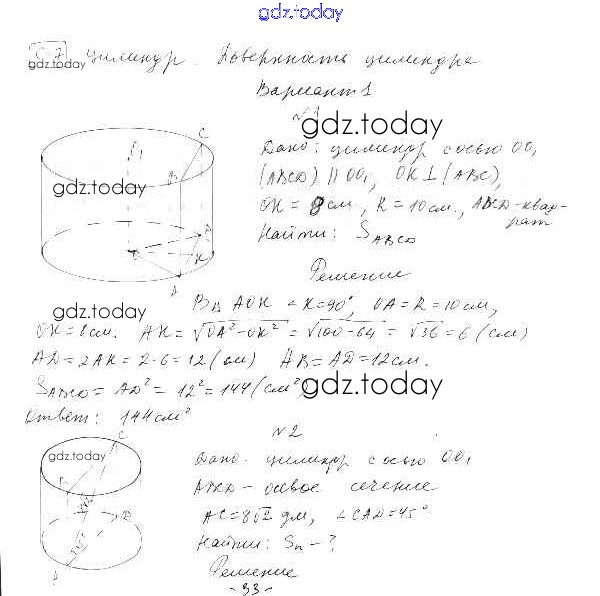 gdz.today
С-7 Цилиндр. Поверхность цилиндра
gdz.today
Вариант 1
№1
gdz.today
Дано: цилиндр с осью OO₁
(ABCD) || OO₁, OK ⊥ (ABC),
OK = 8см, R = 10см., ABCD-квад-
рат
Найти: S ABCD
C
O₁
B
gdz.today
K
A
Решение
В Δ AOK ∠K=90°, OA=R=10см,
gdz.today
OK=8см. AK=√OA²-OK² = √100-64 = √36 = 6 (см)
AD=2AK=2·6=12(см) AB=AD=12см.
S ABCD = AD² = 12² = 144(см²)
gdz.today
Ответ: 144см²
№2
C
gdz.today
Дано: цилиндр с осью OO₁
ABCD - осевое сечение
AC=8√2 дм, ∠CAD=45°
Найти: Sп - ?
Решение
-33-